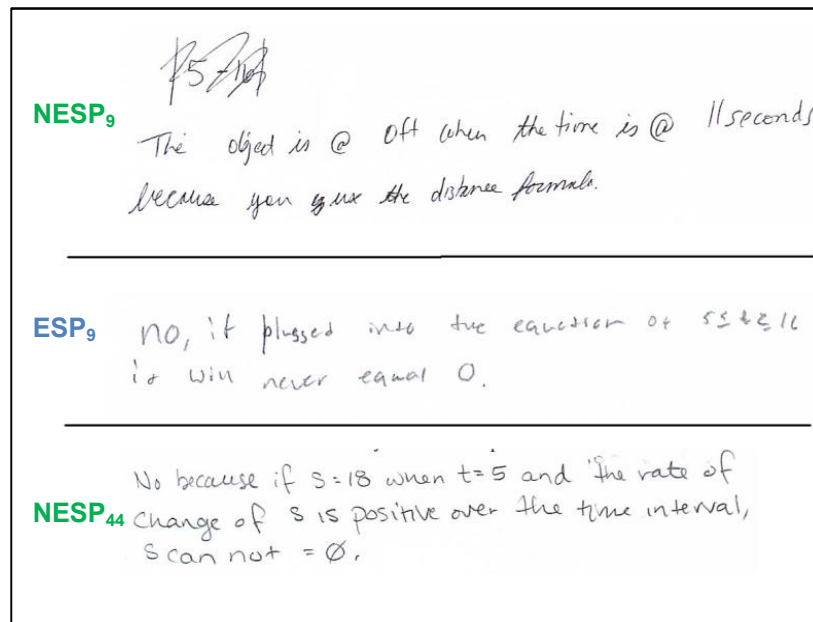 NESP₉
The object is @ 0ft when the time is @ 11 seconds
because you use the distance formula.
ESP₉
no, if plugged into the equation of 5≤t≤11
it will never equal 0.
NESP₄₄
No because if s=18 when t=5 and the rate of
change of s is positive over the time interval,
s can not = Ø.